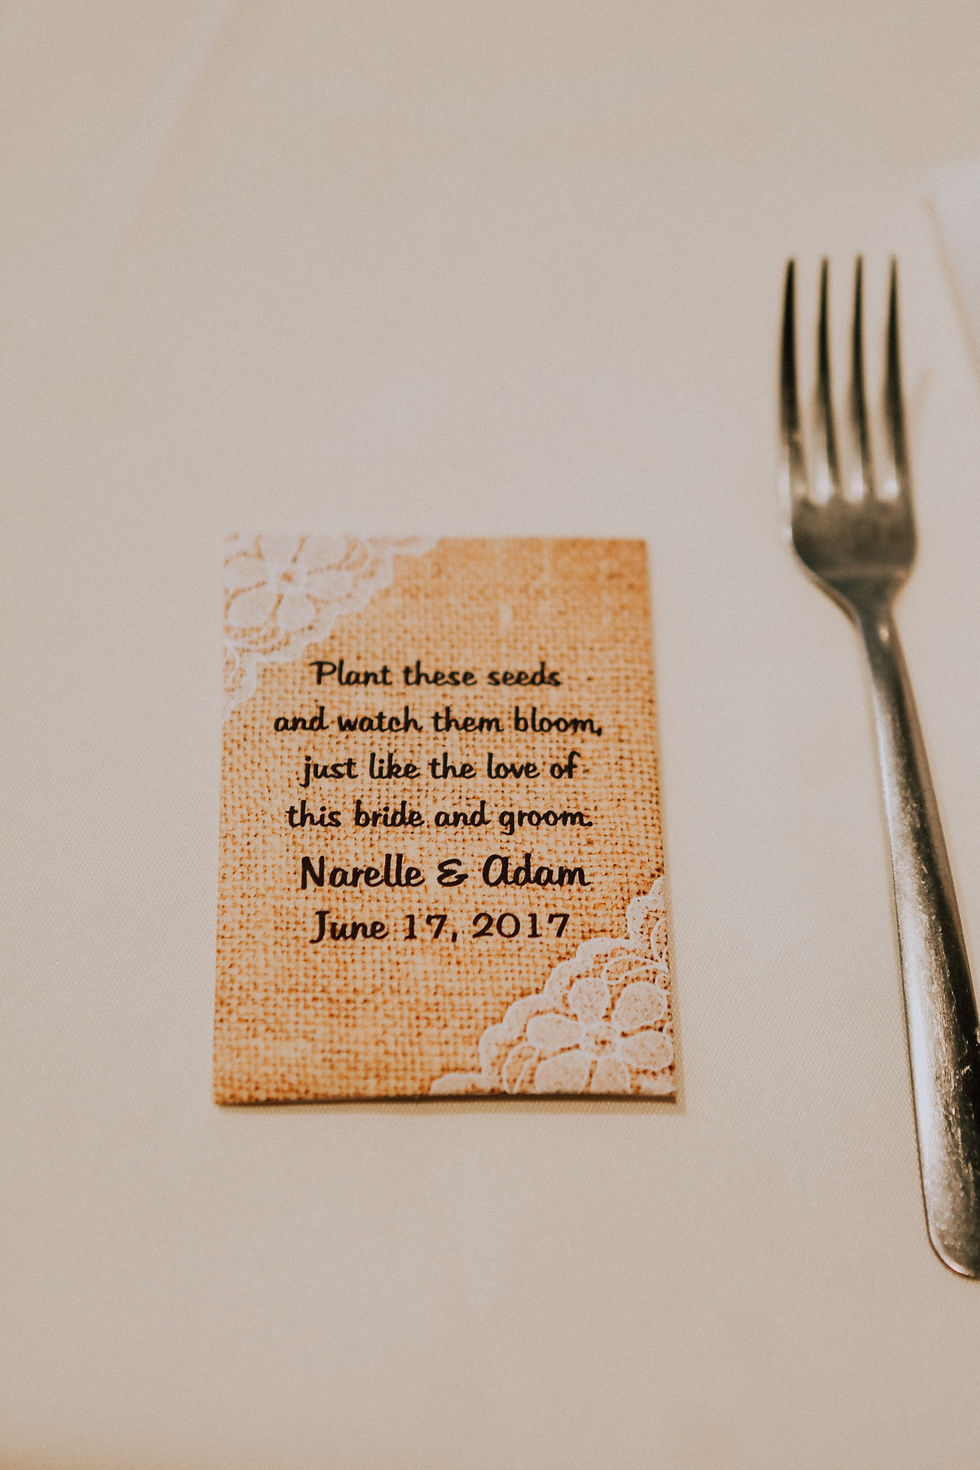 Plant these seeds
and watch them bloom,
just like the love of
this bride and groom.
Narelle & Adam
June 17, 2017